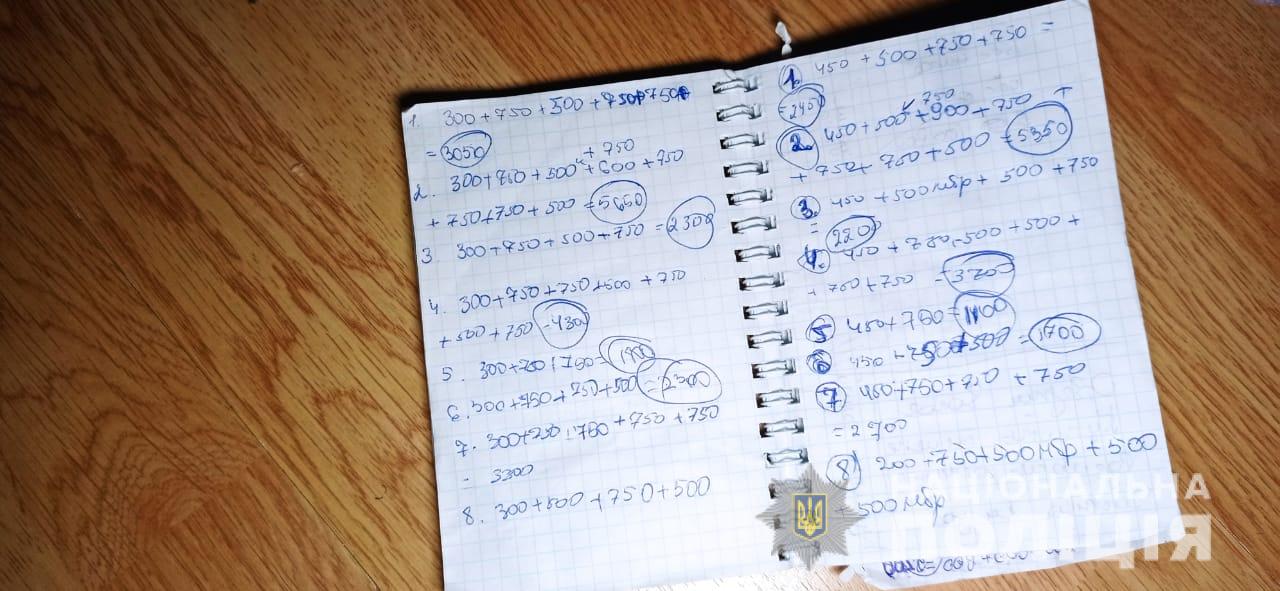 1. 300+750+500+750+750
=3050
+ 750
2. 300+750+500+600+750
+ 750+750+500=5650
3 300+750+500+750=2300
4. 300+750+750+500+750
+500+750=4300
5. 300+750+750=1800
6. 300+750+750+500=2300
7. 300+750+750+750+750
= 3300
8. 300+500+750+500
1. 450+500+750+750=
=2450
750
2. 450+500+900+750 +
+ 750+750+500=5350
3. 450+500мбр+500+750
= 2200
4. 450+750+500+500+
+750+750 =3700
5 450+750=1100
6 450+750+500=1700
7 450+750+750+750
=2700
8) 200+750+500мбр+500
+500мбр
НАЦІОНАЛЬНА
ПОЛІЦІЯ